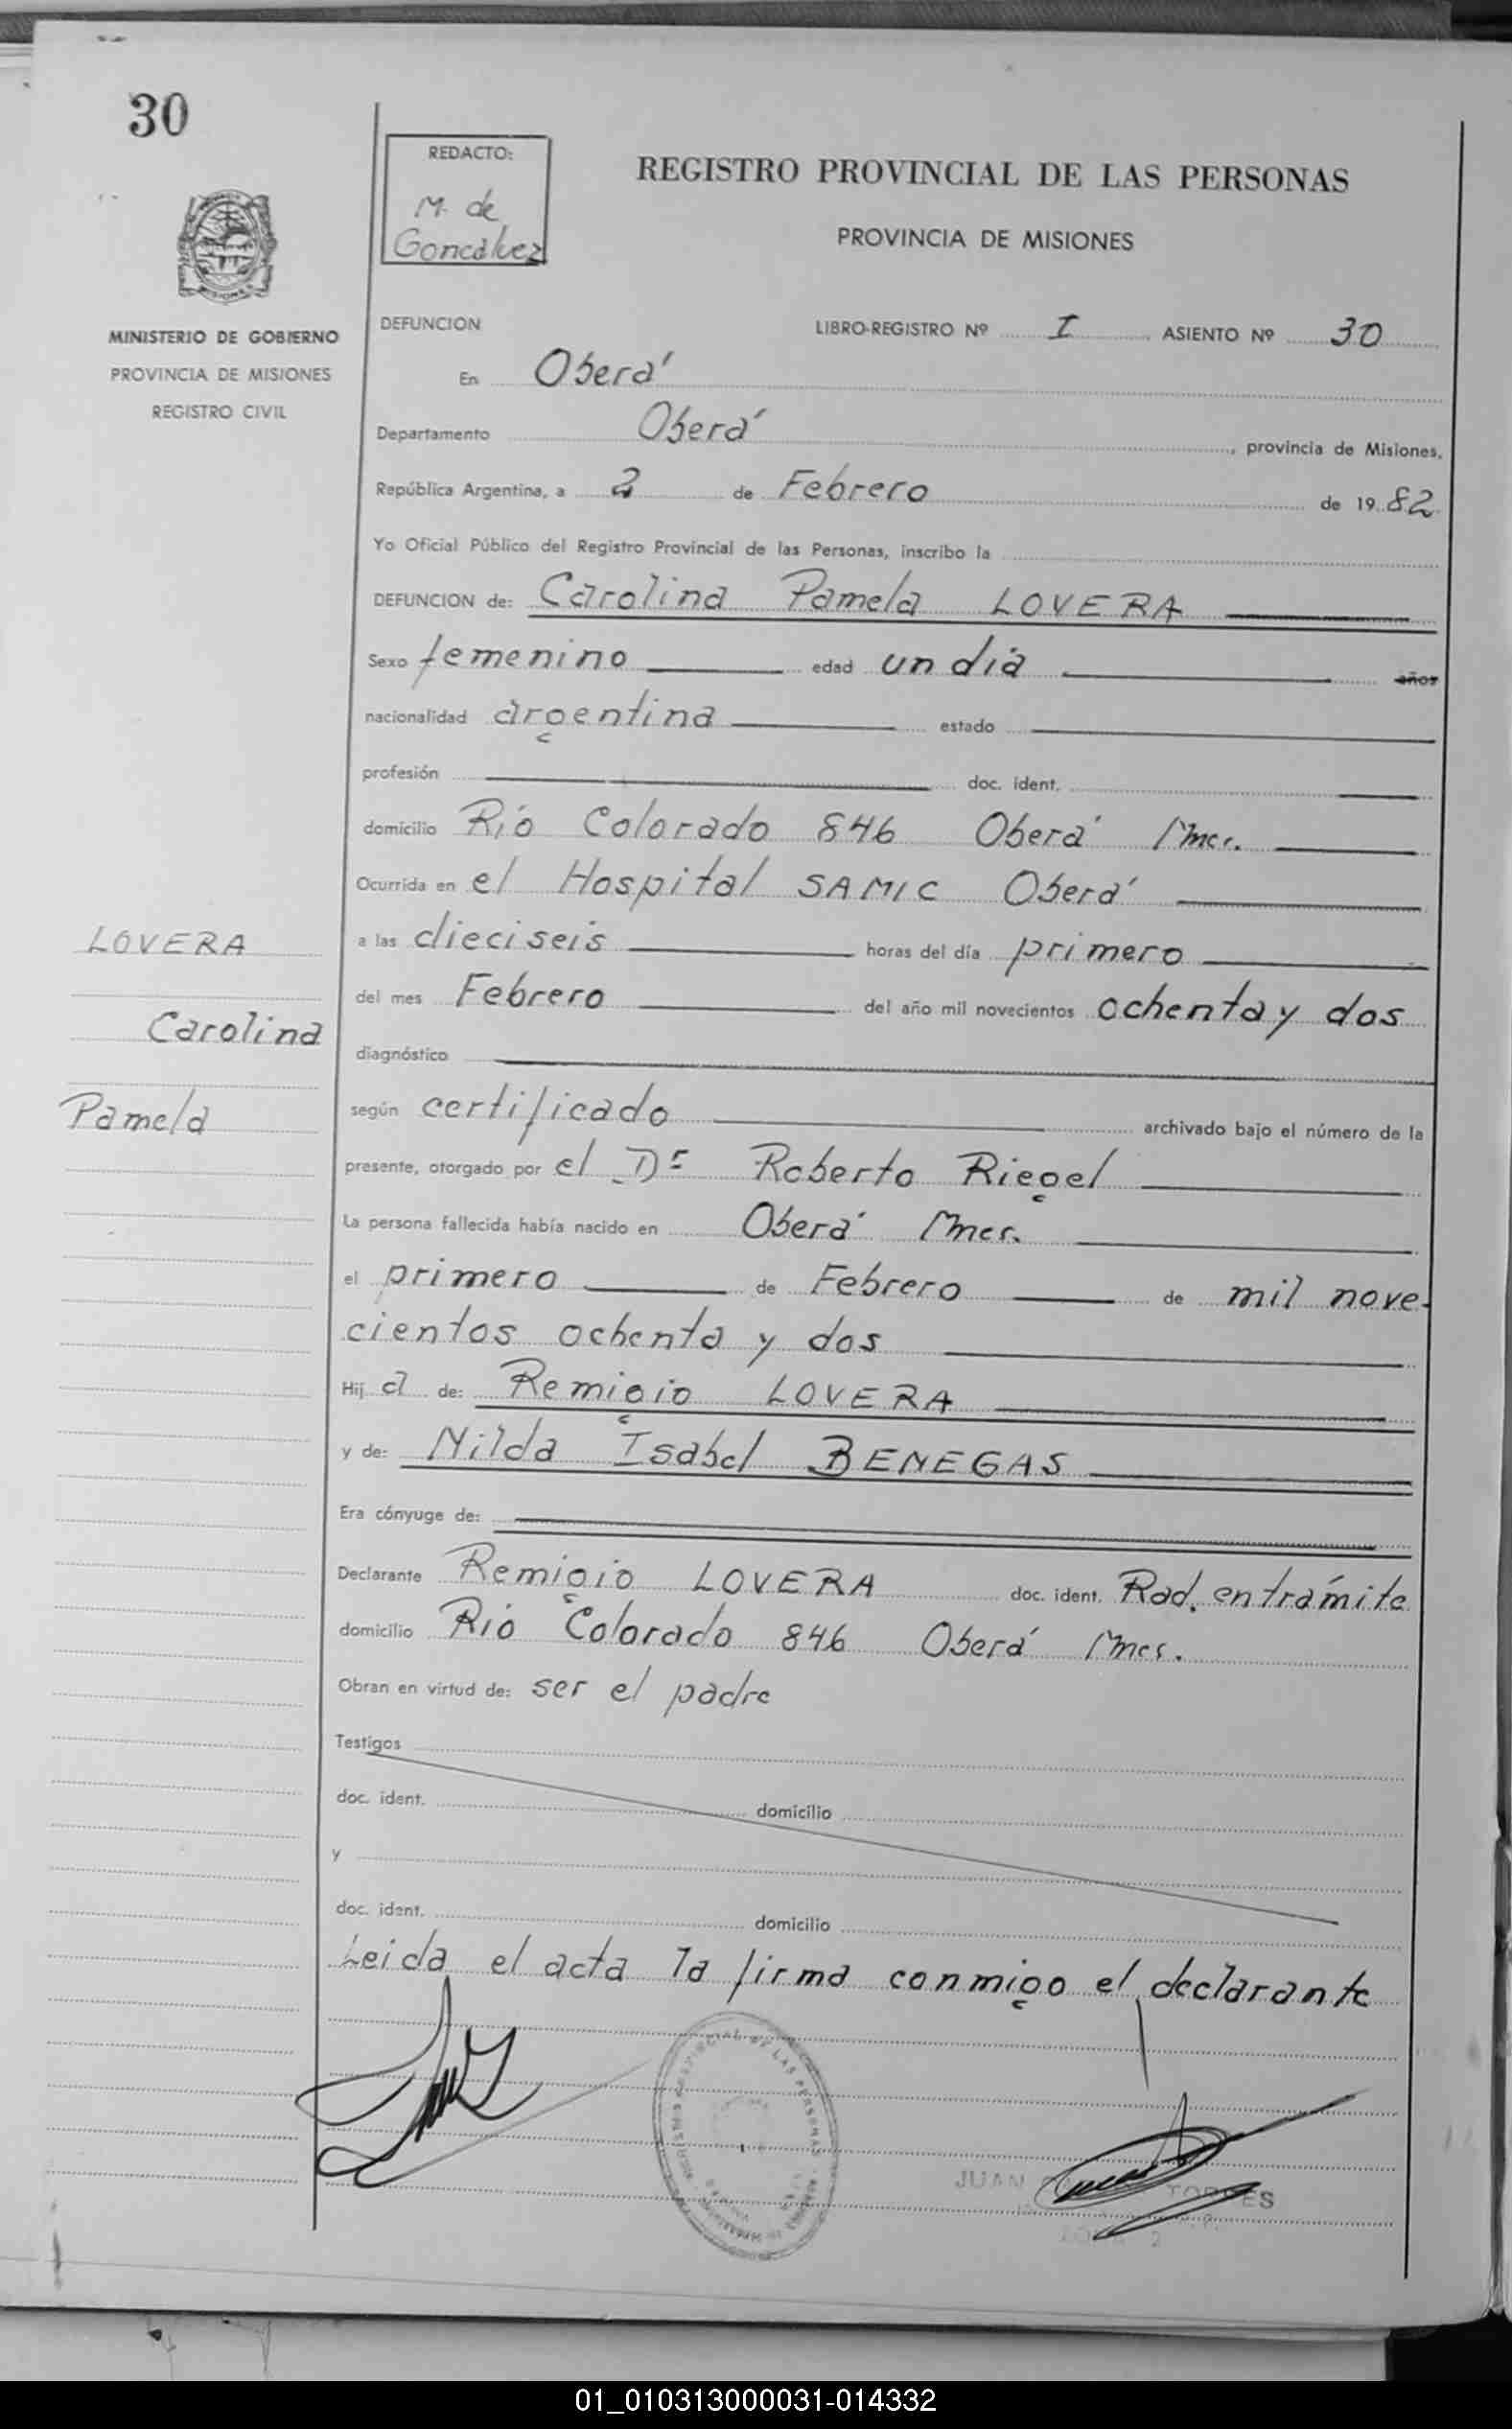 30
REDACTO:
M. de
Goncalvez
REGISTRO PROVINCIAL DE LAS PERSONAS
PROVINCIA DE MISIONES
MISIONES
MINISTERIO DE GOBIERNO
PROVINCIA DE MISIONES
REGISTRO CIVIL
DEFUNCION LIBRO-REGISTRO Nº I ASIENTO Nº 30
En Oberá
Departamento Oberá, provincia de Misiones,
República Argentina, a 2 de Febrero de 1982
Yo Oficial Público del Registro Provincial de las Personas, inscribo la
DEFUNCION de: Carolina Pamela LOVERA
Sexo femenino edad un dia años
nacionalidad argentina estado
profesión doc. ident.
domicilio Rio Colorado 846 Oberá Mnes.
Ocurrida en el Hospital SAMIC Oberá
a las dieciseis horas del día primero
del mes Febrero del año mil novecientos ochenta y dos
diagnóstico
según certificado archivado bajo el número de la
presente, otorgado por el Dr Roberto Riegel
La persona fallecida había nacido en Oberá Mnes.
el primero de Febrero de mil nove-
cientos ochenta y dos
Hija de: Remigio LOVERA
y de: Nilda Isabel BENEGAS
Era cónyuge de:
Declarante Remigio LOVERA doc. ident. Rad. en trámite
domicilio Rio Colorado 846 Oberá Mnes.
Obran en virtud de: ser el padre
Testigos
doc. ident. domicilio
y
doc. ident. domicilio
Leida el acta la firma conmigo el declarante
LOVERA
Carolina
Pamela
JUAN TORRES
01_010313000031-014332